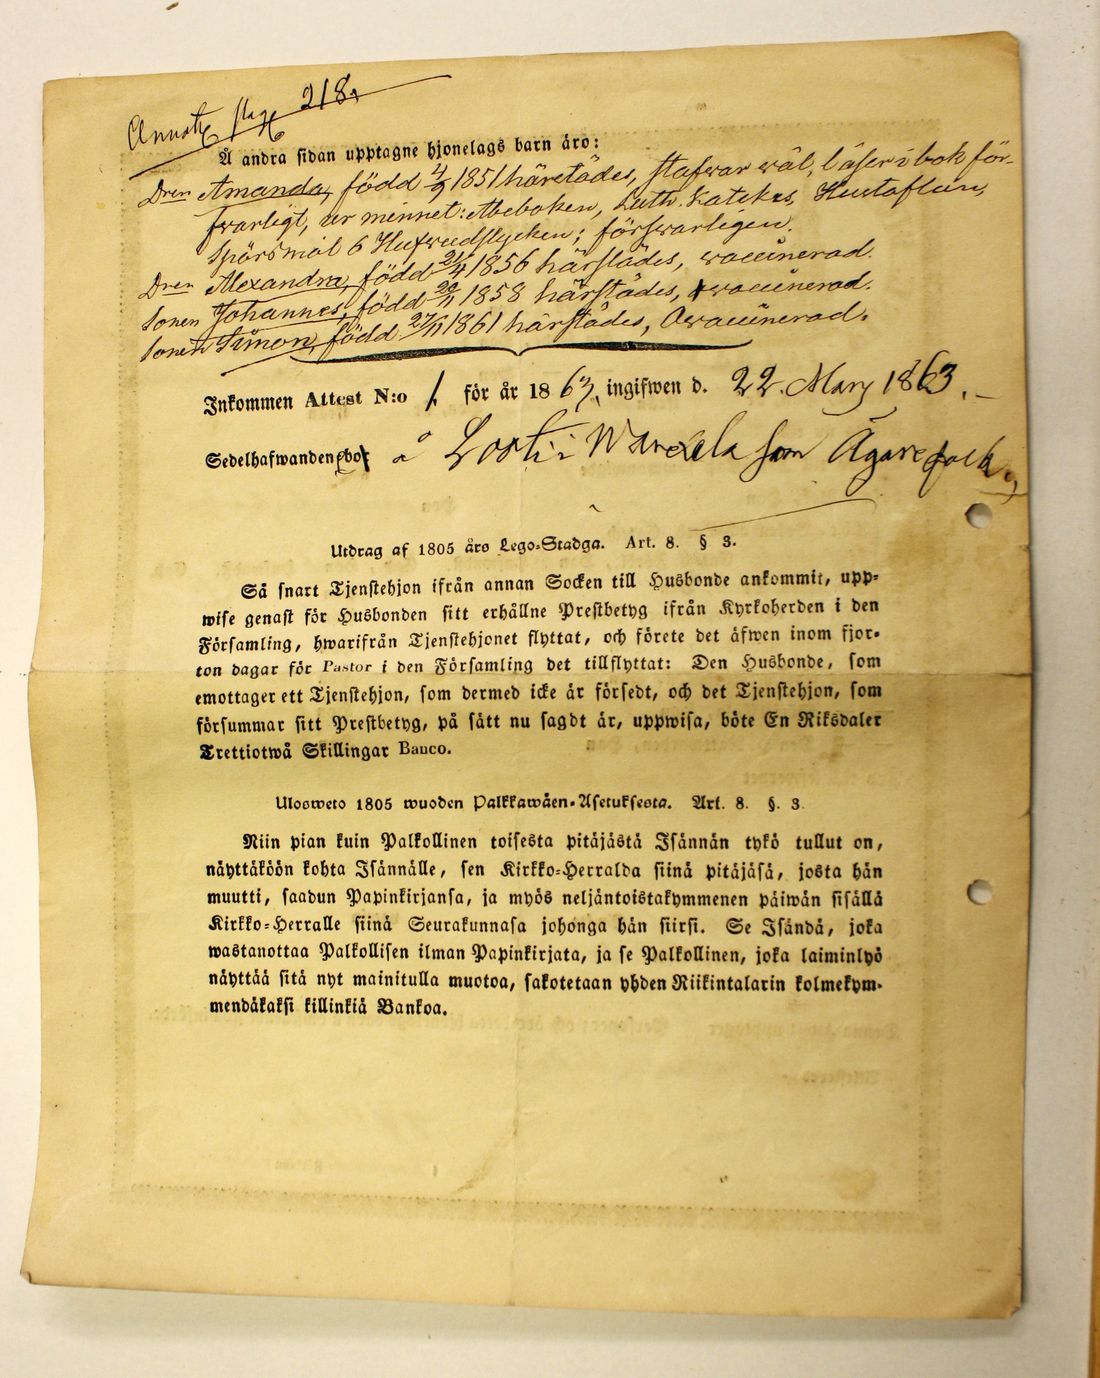 Annot. pag. 218.
Å andra sidan upptagne hjonelags barn äro:
Dren Amanda, född 4/9 1851 härstädes, stafwar wäl, läser i bok för-
swarligt, ur minnet: Abeboken, Luth. Katekes, Hustaflan,
Spörsmål 6 Hufwudstycken; förswarligen.
Dren Alexandra, född 21/4 1856 härstädes, waccinerad.
Sonen Johannes, född 20/11 1858 härstädes, waccinerad.
Sonen Simon, född 27/11 1861 härstädes, Owaccinerad.
Inkommen Attest N:o 1 för år 1863, ingifwen d. 22. Mars 1863.
Sedelhafwanden bor å i som Ägarefolk.
Utdrag af 1805 års Lego-Stadga. Art. 8. § 3.
Så snart Tjenstehjon ifrån annan Socken till Husbonde ankommit, upp-
wise genast för Husbonden sitt erhållne Prestbetyg ifrån Kyrkoherden i den
Församling, hwarifrån Tjenstehjonet flyttat, och förete det äfwen inom fjor-
ton dagar för Pastor i den Församling det tillflyttat: Den Husbonde, som
emottager ett Tjenstehjon, som dermed icke är försedt, och det Tjenstehjon, som
försummar sitt Prestbetyg, på sätt nu sagdt är, uppwisa, böte En Riksdaler
Trettiotwå Skillingar Banco.
Ulosweto 1805 wuoden Palkkawäen-Asetuksesta. Art. 8. §. 3
Niin pian kuin Palkollinen toisesta pitäjästä Isännän tykö tullut on,
näyttäköön kohta Isännälle, sen Kirkko-Herralda siinä pitäjäsä, josta hän
muutti, saadun Papinkirjansa, ja myös neljäntoistakymmenen päiwän sisällä
Kirkko-Herralle siinä Seurakunnasa johonga hän siirsi. Se Isändä, joka
wastanottaa Palkollisen ilman Papinkirjata, ja se Palkollinen, joka laiminlyö
näyttää sitä nyt mainitulla muotoa, sakotetaan yhden Riikintalarin kolmekym-
mendäkaksi killinkiä Bankoa.